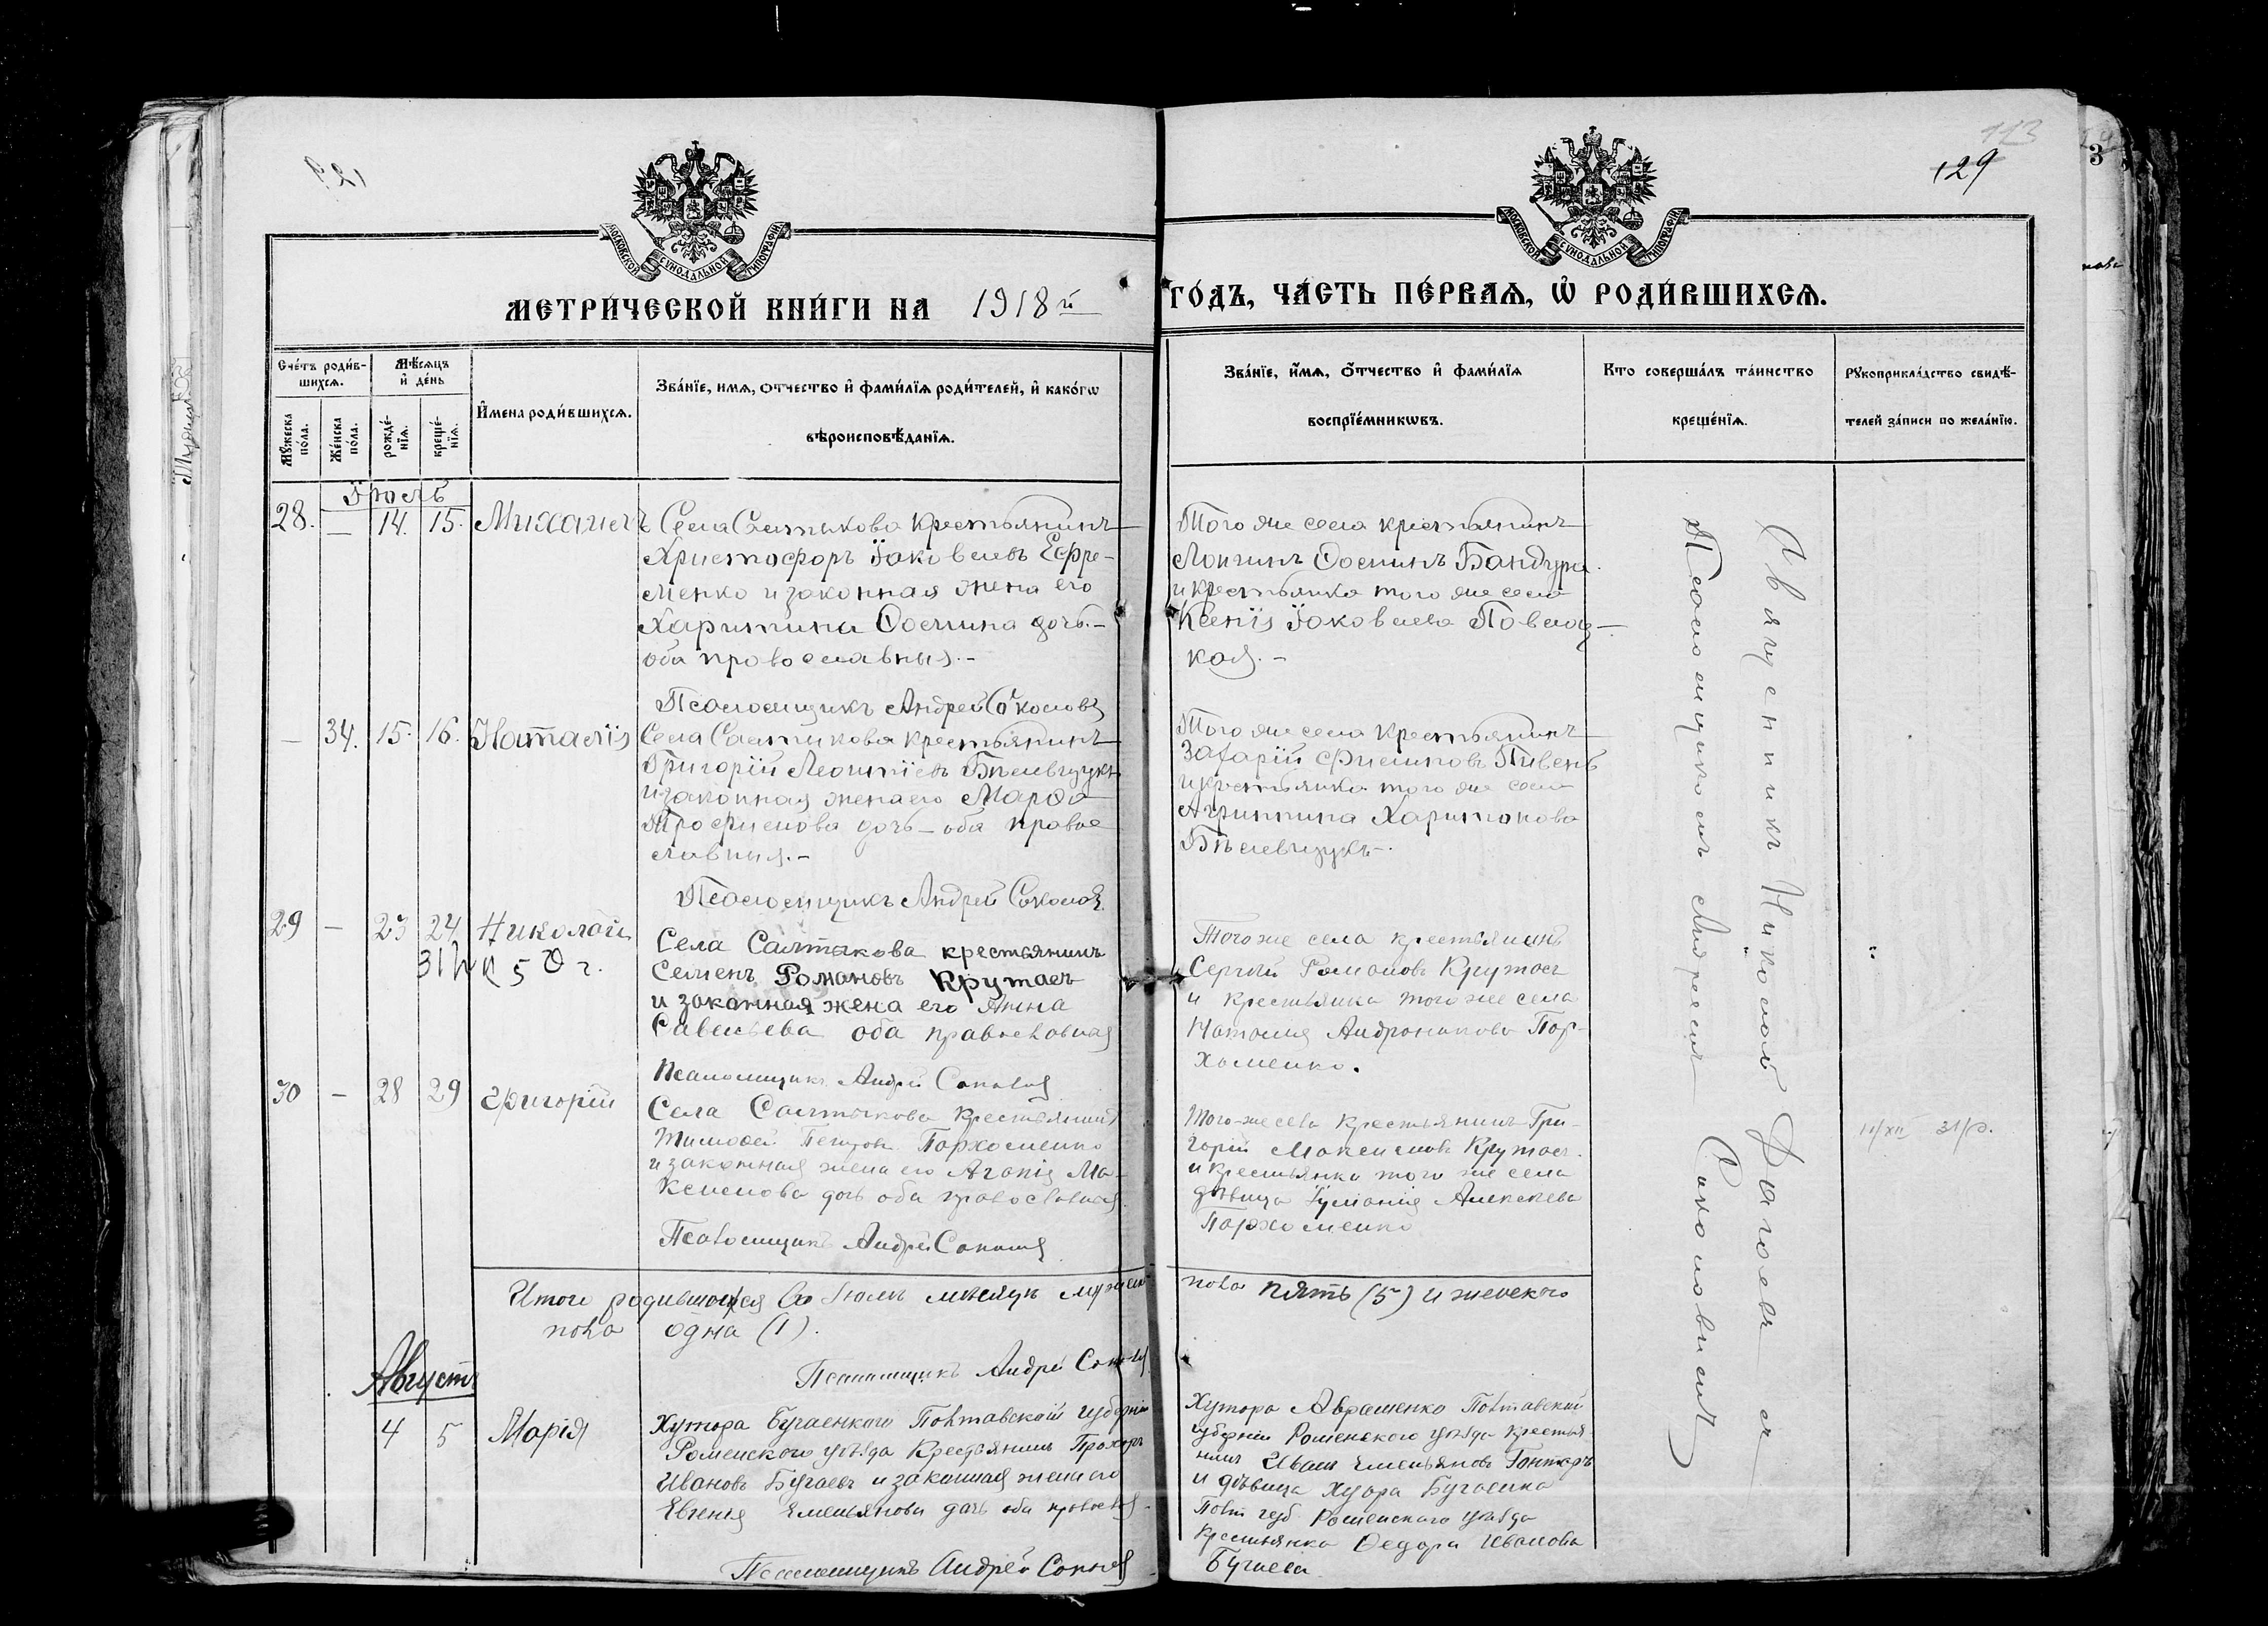 113
129
МОСКОВСКОЙ СУНОДАЛЬНОЙ ТИПОГРАФІИ
МОСКОВСКОЙ СУНОДАЛЬНОЙ ТИПОГРАФІИ
МЕТРИ́ЧЕСКОЙ КНИ́ГИ НА 1918й
ГО́ДЪ, ЧА́СТЬ ПЕ́РВАЯ, Ѡ҆ РОДИ́ВШИХСЯ.
Сче́тъ роди́в-
шихся.
Мѣ́сяцъ
и҆ де́нь
Мꙋ́жеска по́ла.
Же́нска по́ла.
рожде́-
нїя.
креще́-
нїя.
И҆мена роди́вшихся.
Зва́нїе, имя, отчество и҆ фами́лїя роди́телей, и҆ како́гѡ
вѣроисповѣ́данїя.
Зва́нїе, и҆́мя, о҆́тчество и҆ фами́лїя
воспрїе́мникѡвъ.
Кто соверша́лъ та́инство
креще́нїя.
Рꙋкоприкла́дство свидѣ́-
телей за́писи по жела́нїю.
Іюль
28. — 14. 15. Михаилъ
Села Салтыкова крестьянинъ
Христофоръ Іаковлевъ Ефре-
менко и законная жена его
Харитина Ѳомина дочь. –
оба православныя. –
Псаломщикъ Андрей Соколовъ
Того же села крестьянинъ
Лонгинъ Ѳоминъ Бандура
и крестьянка того же села
Ксенія Іаковлева Повелиц-
кая. –
— 34. 15. 16. Наталія
Села Салтыкова крестьянинъ
Григорій Леонтіевъ
и законная жена его Марѳа
Трофимова дочь – оба право
славныя. –
Псаломщикъ Андрей Соколов
Того же села крестьянинъ
Захарій Филиповъ Пивень
и крестьянка того же села
Агриппина Харитонова
29 — 23 24 Николай
Села Салтыкова крестьянинъ
Семенъ Романовъ Крутаеъ
и законная жена его Анна
Савельева оба православная
Псаломщикъ Андрей Соколов
Того же села крестьянинъ
Сергѣй Романовъ Крутаеъ
и крестьянка того же села
Наталия Андроникова Пар-
хоменко.
30 — 28 29 Григорій
Села Салтыкова крестьянинъ
Тимоѳей Петровъ Пархоменко
и законная жена его Агапія Ма-
ксимова дочь оба православная
Псаломщикъ Андрей Соколов
Того-же села крестьянинъ Гри-
горій Максимовъ Крутаеъ
и крестьянка того же села
дѣвица Іуліанія Алексѣева
Пархоменко
31/
Итого родившихся въ Іюлѣ мѣсяцѣ мужеск
пола пять (5) и женского
пола одна (1).
Псаломщикъ Андрей Соколов
Августъ
4 5 Марія
Хутора Бугаенкого Полтавской губерніи
Роменского уѣзда Крестьянинъ Прохоръ
Ивановъ Бугаевъ и законная жена его
Евгенія Емельянова дочь оба православ
Псаломщикъ Андрей Соколов
Хутора Авраменко Полтавской
губерніи Роменского уѣзда крестья
нинъ Иванъ Емельяновъ Гонтарь
и дѣвица Хутора Бугаенко
Полт губ Роменского уѣзда
Крестьянка Ѳедора Иванова
Бугаева
Священникъ Николай
Псаломщикомъ Андреемъ Соколовымъ